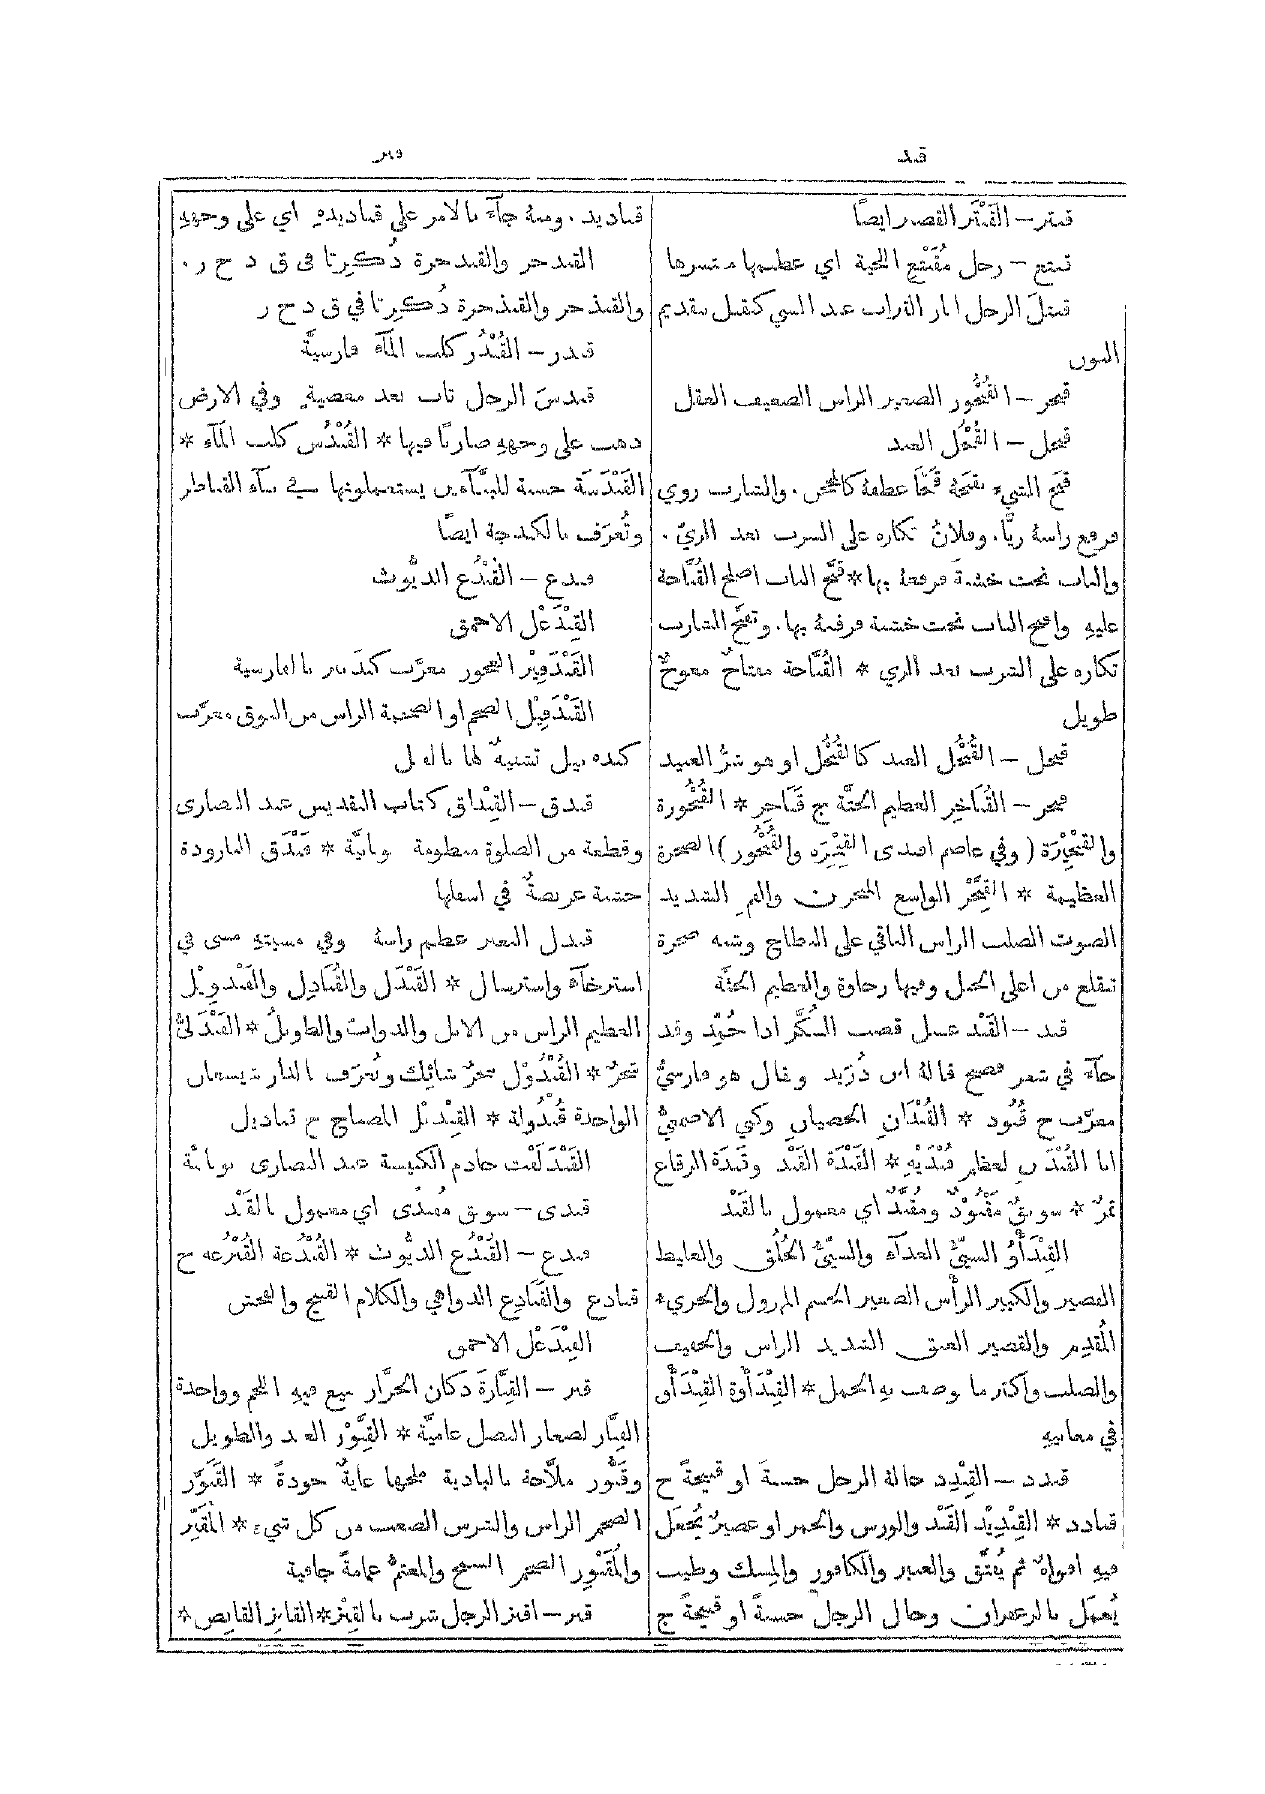 قند
قنر
قنتر – القَنْتَر القصير ايضًا
قنتع – رجل مُقَنتِع اللحية اي عظيمها منتشرها
قنثلَ الرجل اثار التراب عند المشي كنقثل بتقديم
النون
قنجر – القُنْجُور الصغير الراس الضعيف العقل
قنجل – القُنْجُل العبد
قنَحَ الشيء يقنَحهُ قَنْحًا عطفهُ كالمحجن. والشارب روي
فرفع راسهُ ريًّا. وفلانٌ تكاره على الشرب بعد الريّ.
والباب نحت خشبةً فرفعهُ بها * قنَّح الباب اصلح القُنَّاحة
عليهِ واقنح الباب نحت خشبة فرفعهُ بها. وتقنَّح الشارب
تكاره على الشرب بعد الري * القُنَّاحة مفتاحٌ معوجٌّ
طويل
قنحل – القُنْحُل العبد كالقُنْجُل او هو شرُّ العبيد
قنخر – القُنَاخِر العظيم الجثَّة ج قَنَاخِر * القُنْخُورة
والقِنْخِيرة (وفي عاصم افندى القِنْخِيره والقُنْخُور) الصخرة
العظيمة * القِنَّخْر الواسع المنخرين والفم الشديد
الصوت الصلب الراس الباقي على النطاح وشبه صخرة
تنقلع من اعلى الجبل وفيها رخاوة والعظيم الجثَّة
قند – القَنْد عسل قصب السُّكَّر اذا جُمِّد وقد
جآءَ في شعر فصيح قالهُ ابن دُرَيد وقال هو فارسيٌّ
معرَّب ج قُنُود * القُنْدَانِ الخصيانِ وكني الاصمعيُّ
ابا القُنْدَينِ لعظم قُنْدَيْهِ * القَنْدَة القَنْد وقَنْدَة الرقاع
تمرٌ * سويقٌ مَقْنُودٌ ومُقَنَّدٌ اي معمول بالقَنْد
القِنْدَأْوُ السيّئُ الغذآء والسيّئُ الخُلُق والغليظ
القصير والكبير الرأْس الصغير الجسم المهزول والجريءُ
المُقدِم والقصير العنق الشديد الراس والخفيف
والصلب واكثر ما يوصف بهِ الجمل * القِنْدَأْوة القِنْدَأْو
في معانيهِ
قندد – القِنْدِد حالة الرجل حسنةً او قبيحةً ج
قنادد * القِنْدِيْد القَنْد والورس والخمر او عصيرٌ يُجعَل
فيهِ افواهٌ ثم يُفتَّق والعنبر والكافور والمسك وطيب
يُعمَل بالزعفران وحال الرجل حسنةً او قبيحةً ج
قناديد. ومنهُ جآءَ بالامر على قناديدهِ اي على وجههِ
القندحر والقندحرة ذُكِرتا في ق د ح ر.
والقنذحر والقنذحرة ذُكِرتا في ق ذ ح ر
قندر – القُنْدُر كلب المآءِ فارسيَّة
قندسَ الرجل تاب بعد معصيةٍ وفي الارض
ذهب على وجههِ ضاربًا فيها * القُنْدُس كلب المآء *
القَنْدَسَة خشبة للبنَّآءين يستعملونها في بنآء القناطر
وتُعرَف بالكندجة ايضًا
قندع – القُنْدُع الديُّوث
القِنْدَعْل الاحمق
القَنْدَفِيْر العجوز معرَّب كندَپير بالفارسية
القَنْدَفِيْل الضخم او الضخمة الراس من النوق معرَّب
كنده پيل تشبيهٌ لها بالفيل
قندق – القِنْدَاق كتاب التقديس عند النصارى
وقطعة من الصلوة منظومة يونانيَّة * قَنْدَق البارودة
خشبة عريضةٌ في اسفلها
قندل البعير عظم راسهُ وفي مشيتهِ مشى في
استرخآءٍ واسترسال * القَنْدَل والقُنَادِل والقَنْدَوِيْل
العظيم الراس من الابل والدوابّ والطويلُ * القَنْدَلِيُّ
شجرٌ * القُنْدُوْل شجرٌ شائِك وتُعرَف بالدار شيسعان
الواحدة قُنْدُولة * القِنْدِيْل المصباح ج قناديل
القَنْدَلَفْت خادم الكنيسة عند النصارى يونانيَّة
قندى – سويق مُقنْدًى اي معمول بالقَنْد
قنذع – القُنْذُع الديُّوث * القُنْذُعة القُنْزُعة ج
قناذع والقَنَاذِع الدواهي والكلام القبيح والفحش
القِنْذَعْل الاحمق
قنر – القِنَّارَة دكان الجزَّار يبيع فيهِ اللحم وواحدة
القِنَّار لصغار البصل عاميَّة * القِنَّوْر العبد والطويل
وقَنُّور ملَّاحة بالبادية ملحها غايةٌ جودةً * القَنَوَّر
الضخم الراس والشرس الصعب من كل شيءٍ * المُقَنِّر
والمُقَنْوِر الضخم السمج والمعتمُّ عمامةً جافية
قنز – اقنز الرجل شرب بالقِنْز * القانِز القانِص *